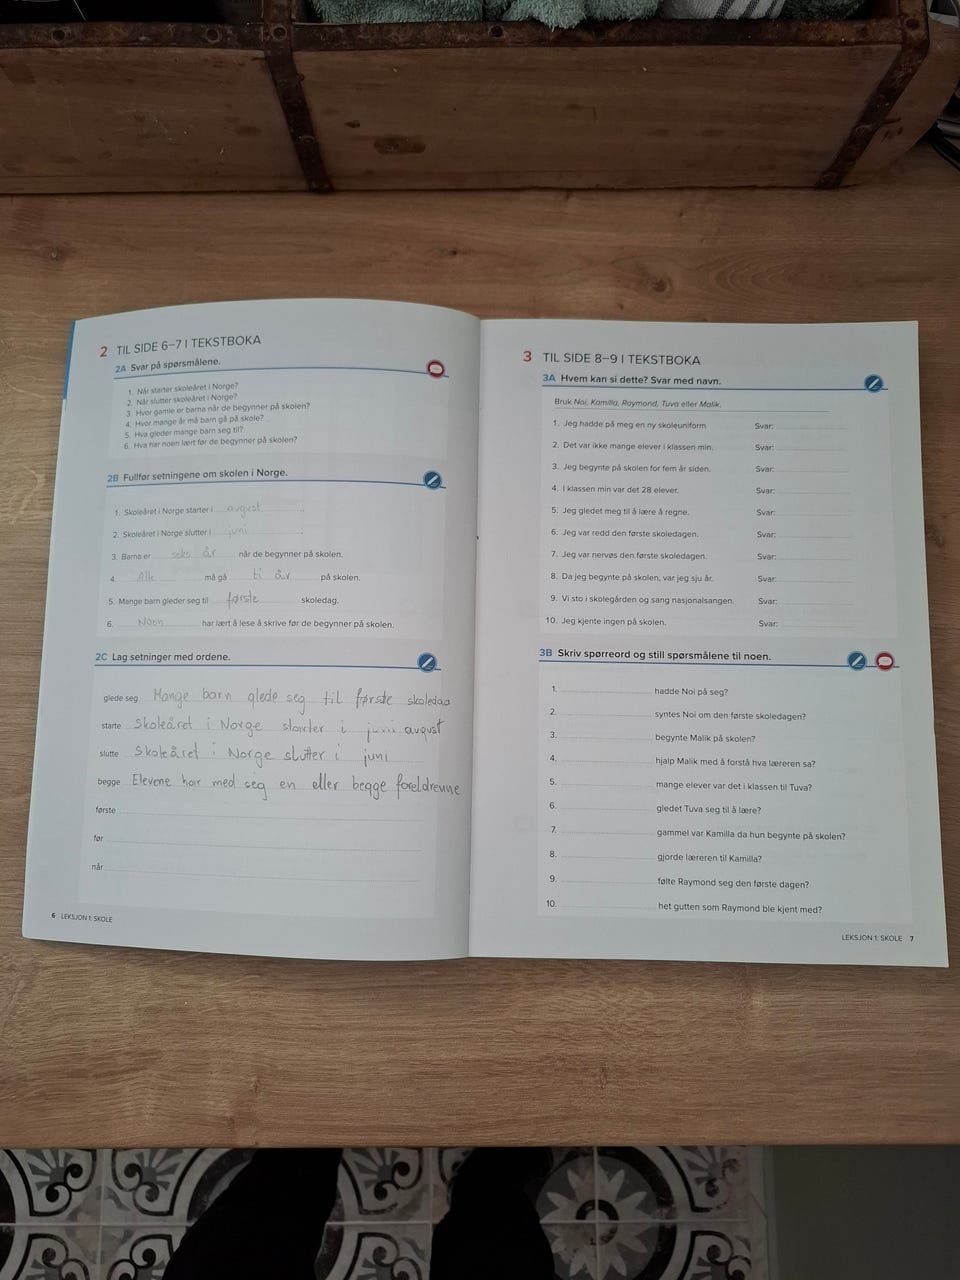 2 TIL SIDE 6–7 I TEKSTBOKA
2A Svar på spørsmålene.
1. Når starter skoleåret i Norge?
2. Når slutter skoleåret i Norge?
3. Hvor gamle er barna når de begynner på skolen?
4. Hvor mange år må barn gå på skole?
5. Hva gleder mange barn seg til?
6. Hva har noen lært før de begynner på skolen?
2B Fullfør setningene om skolen i Norge.
1. Skoleåret i Norge starter i august
2. Skoleåret i Norge slutter i juni
3. Barna er seks år når de begynner på skolen.
4. Alle må gå ti år på skolen.
5. Mange barn gleder seg til første skoledag.
6. Noen har lært å lese å skrive før de begynner på skolen.
2C Lag setninger med ordene.
glede seg Mange barn glede seg til første skoledag
starte Skoleåret i Norge starter i juni august
slutte Skoleåret i Norge slutter i juni
begge Elevene har med seg en eller begge foreldrenne
første
før
når
6 LEKSJON 1: SKOLE
3 TIL SIDE 8–9 I TEKSTBOKA
3A Hvem kan si dette? Svar med navn.
Bruk Noi, Kamilla, Raymond, Tuva eller Malik.
1. Jeg hadde på meg en ny skoleuniform Svar:
2. Det var ikke mange elever i klassen min. Svar:
3. Jeg begynte på skolen for fem år siden. Svar:
4. I klassen min var det 28 elever. Svar:
5. Jeg gledet meg til å lære å regne. Svar:
6. Jeg var redd den første skoledagen. Svar:
7. Jeg var nervøs den første skoledagen. Svar:
8. Da jeg begynte på skolen, var jeg sju år. Svar:
9. Vi sto i skolegården og sang nasjonalsangen. Svar:
10. Jeg kjente ingen på skolen. Svar:
3B Skriv spørreord og still spørsmålene til noen.
1. hadde Noi på seg?
2. syntes Noi om den første skoledagen?
3. begynte Malik på skolen?
4. hjalp Malik med å forstå hva læreren sa?
5. mange elever var det i klassen til Tuva?
6. gledet Tuva seg til å lære?
7. gammel var Kamilla da hun begynte på skolen?
8. gjorde læreren til Kamilla?
9. følte Raymond seg den første dagen?
10. het gutten som Raymond ble kjent med?
LEKSJON 1: SKOLE 7